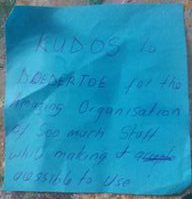 KUDOS to
for the
Amazing Organisation
of soo much Stuff
while making it
to use